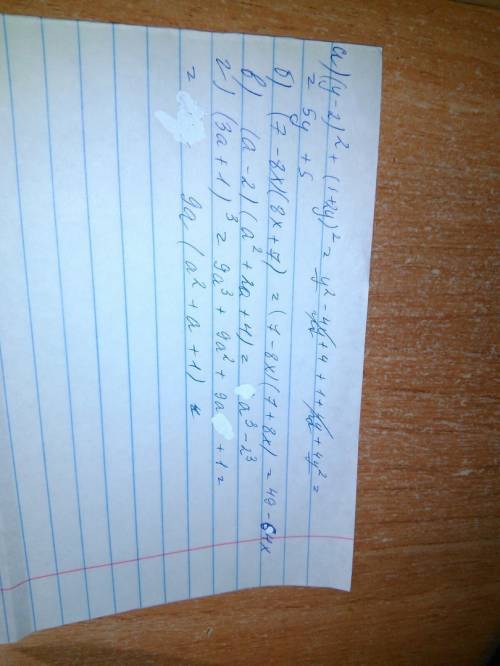 а) (y-2)² + (1+2y)² = y² - 4y + 4 + 1 + 4y + 4y² =
= 5y + 5
б) (7-8x)(8x+7) = (7-8x)(7+8x) = 49-64x
в) (a-2)(a²+2a+4) = a³-2³
г) (3a+1)³ = 9a³ + 9a² + 9a + 1 =
= 9a(a²+a+1)